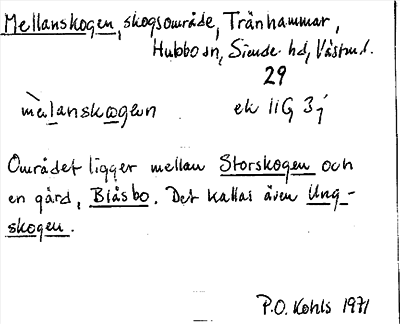 Mellanskogen, skogsområde, Tränhammar,
Hubbo sn, Siende hd, Västml.
29
mèlanskωgen ek 11G 3j
Området ligger mellan Storskogen och
en gård, Blåsbo. Det kallas även Ung-
skogen.
P.O. Kohls 1971